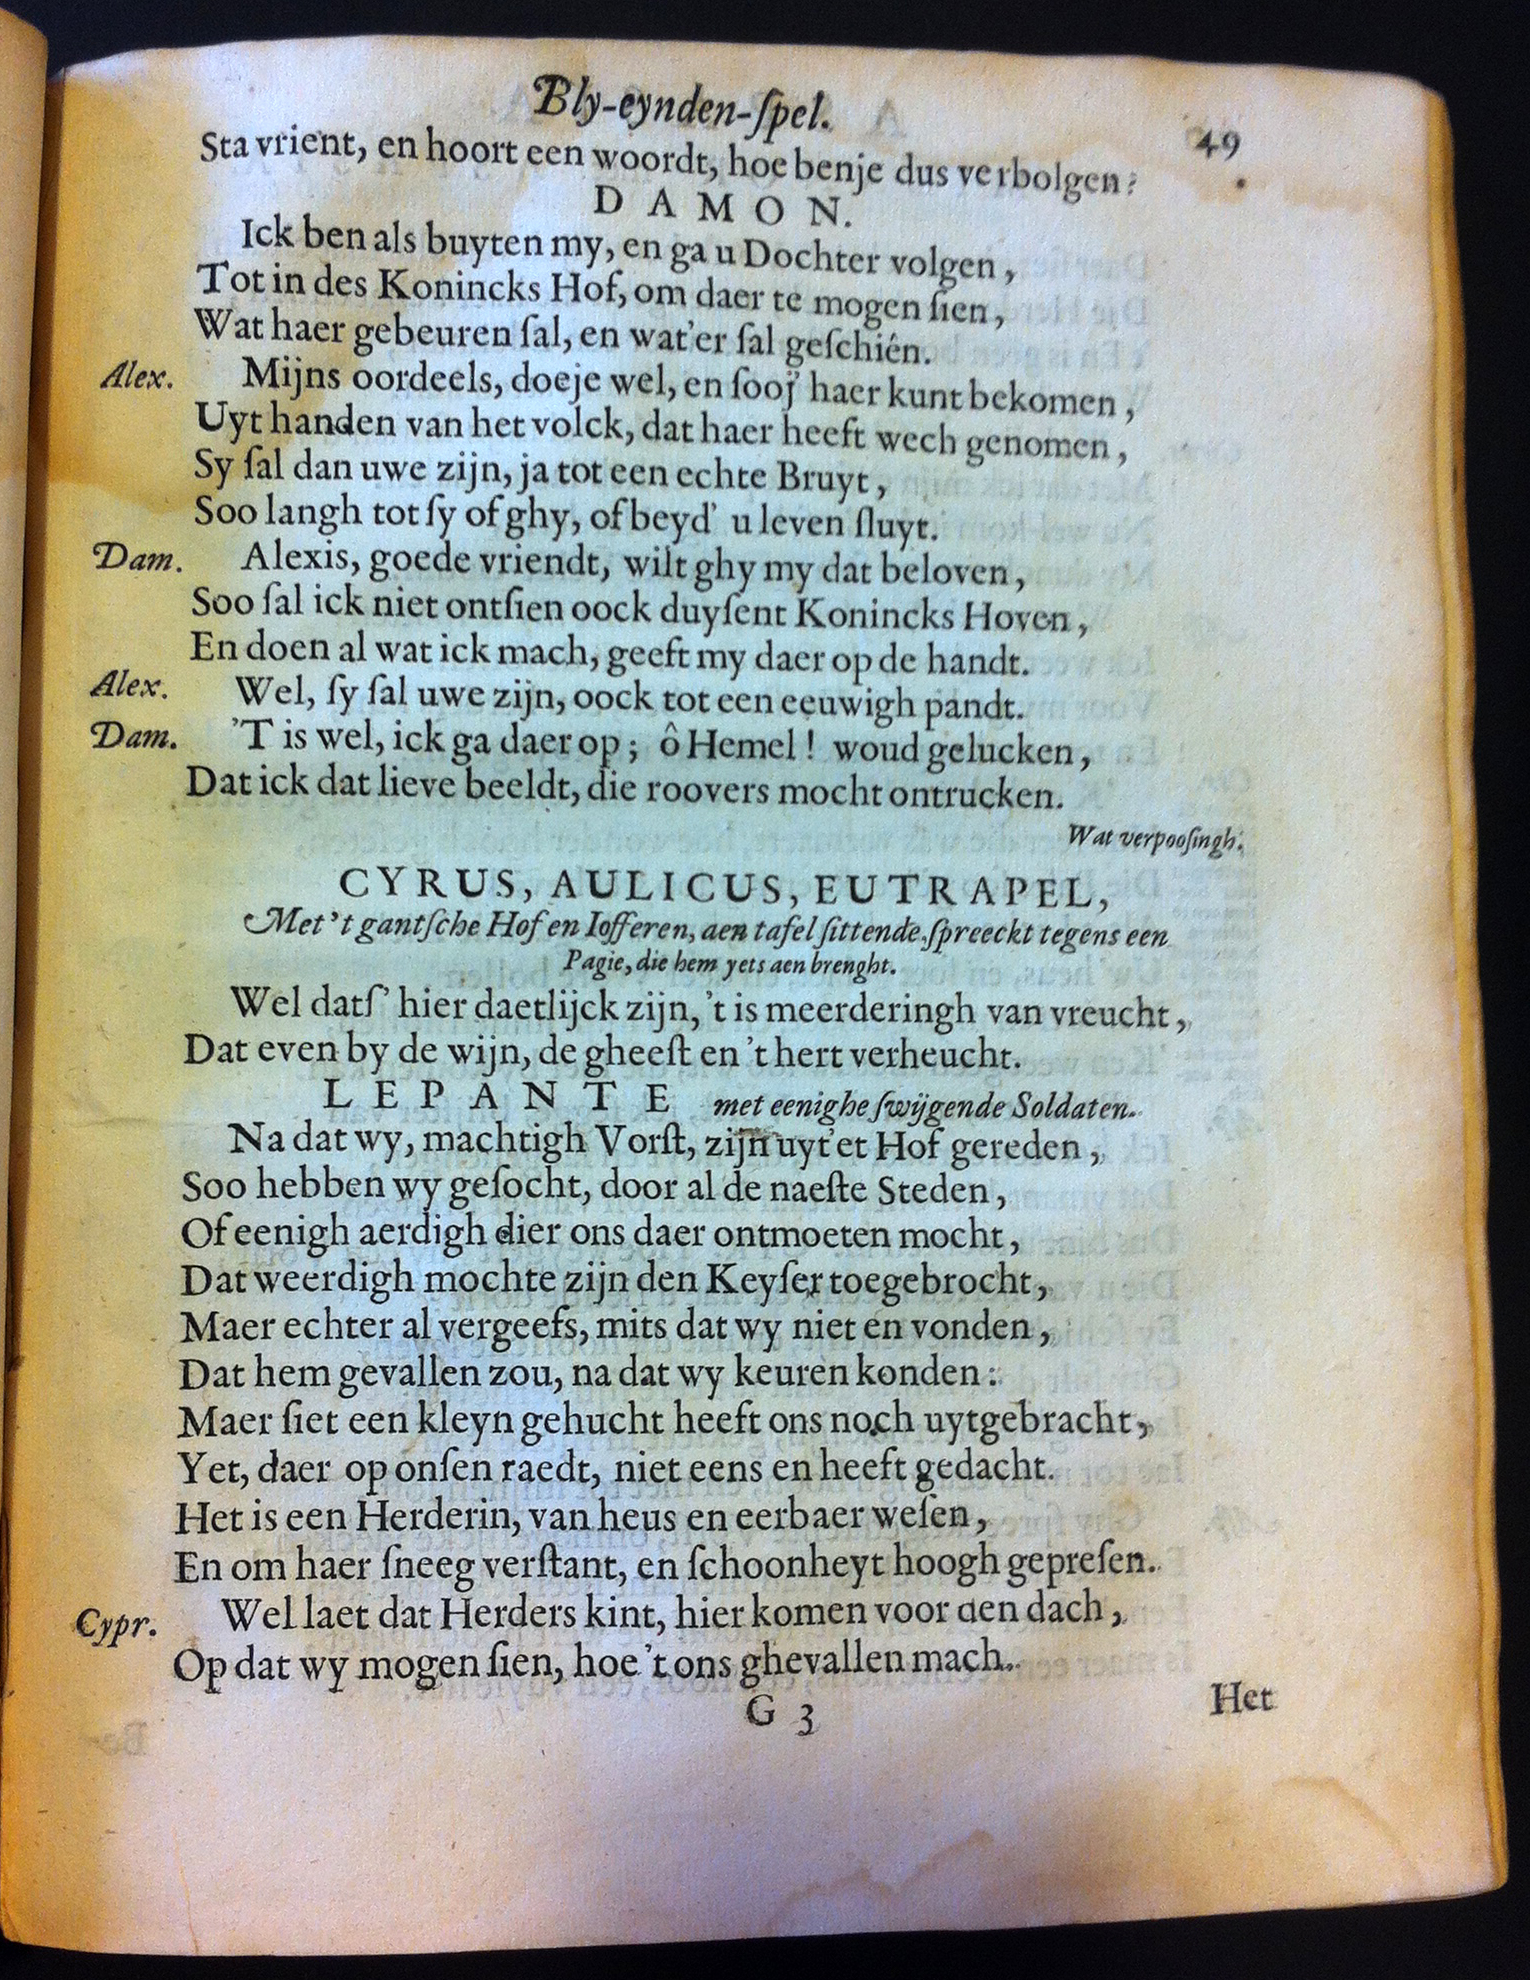 Bly-eynden-ſpel.
49
Sta vrient, en hoort een woordt, hoe benje dus verbolgen?
DAMON.
Ick ben als buyten my, en ga u Dochter volgen,
Tot in des Konincks Hof, om daer te mogen ſien,
Wat haer gebeuren ſal, en wat'er ſal geſchiên.
Alex. Mijns oordeels, doeje wel, en ſooj' haer kunt bekomen,
Uyt handen van het volck, dat haer heeft wech genomen,
Sy ſal dan uwe zijn, ja tot een echte Bruyt,
Soo langh tot ſy of ghy, of beyd' u leven ſluyt.
Dam. Alexis, goede vriendt, wilt ghy my dat beloven,
Soo ſal ick niet ontſien oock duyſent Konincks Hoven,
En doen al wat ick mach, geeft my daer op de handt.
Alex. Wel, ſy ſal uwe zijn, oock tot een eeuwigh pandt.
Dam. 'T is wel, ick ga daer op; ô Hemel! woud gelucken,
Dat ick dat lieve beeldt, die roovers mocht ontrucken.
Wat verpooſingh.
CYRUS, AULICUS, EUTRAPEL,
Met 't gantſche Hof en Iofferen, aen tafel ſittende, ſpreeckt tegens een
Pagie, die hem yets aen brenght.
Wel datſ' hier daetlijck zijn, 't is meerderingh van vreucht,
Dat even by de wijn, de gheeſt en 't hert verheucht.
LEPANTE met eenighe ſwijgende Soldaten.
Na dat wy, machtigh Vorſt, zijn uyt'et Hof gereden,
Soo hebben wy geſocht, door al de naeſte Steden,
Of eenigh aerdigh dier ons daer ontmoeten mocht,
Dat weerdigh mochte zijn den Keyſer toegebrocht,
Maer echter al vergeefs, mits dat wy niet en vonden,
Dat hem gevallen zou, na dat wy keuren konden:
Maer ſiet een kleyn gehucht heeft ons noch uytgebracht,
Yet, daer op onſen raedt, niet eens en heeft gedacht.
Het is een Herderin, van heus en eerbaer weſen,
En om haer ſneeg verſtant, en ſchoonheyt hoogh gepreſen.
Cypr. Wel laet dat Herders kint, hier komen voor den dach,
Op dat wy mogen ſien, hoe 't ons ghevallen mach.
G 3
Het